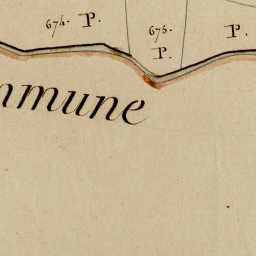 674. P.
675.
P.
P.
mmune